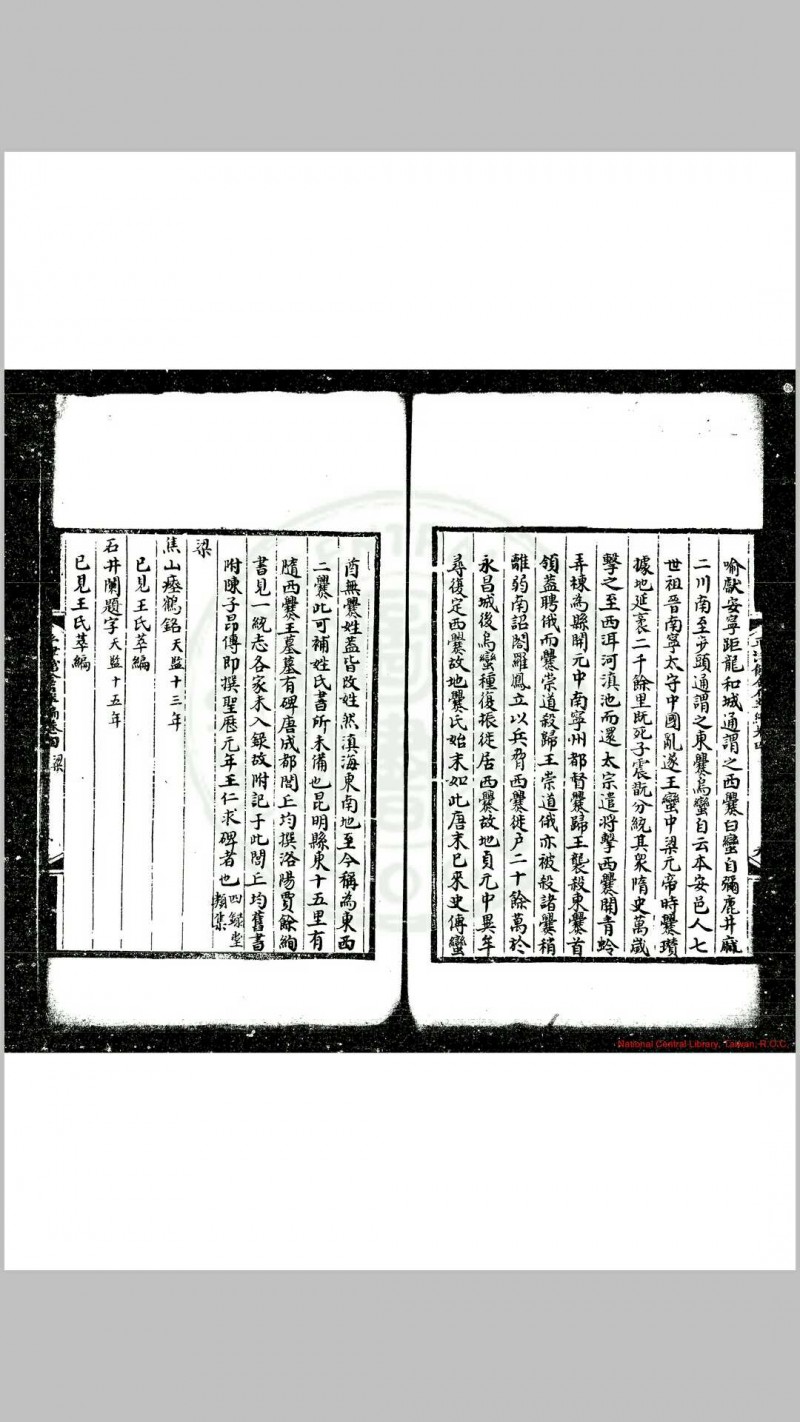 喻獻安寧距龍和城通謂之西爨白蠻自彌鹿井麻
二川南至步頭通謂之東爨烏蠻自云本安邑人七
世祖晉南寧太守中國亂遂王蠻中梁元帝時爨瓚
據地延袤二千餘里既死子震翫分統其衆隋史萬歲
擊之至西洱河滇池而還太宗遣將擊西爨開青蛉
弄棟為縣開元中南寧州都督爨歸王襲殺東爨首
領蓋聘俄而爨崇道殺歸王崇道俄亦被殺諸爨稍
離弱南詔閣羅鳳立以兵脅西爨徙户二十餘萬於
永昌城後烏蠻種復振徙居西爨故地貞元中異牟
尋復定西爨故地爨氏始末如此唐末已來史傳蠻
酋無爨姓蓋皆改姓然滇海東南地至今稱為東西
二爨此可補姓氏書所未備也昆明縣東十五里有
隨西爨王墓墓有碑唐成都閭丘均撰洛陽賈餘絢
書見一統志各家未入錄故附記于此閭丘均舊書
附陳子昂傳即撰聖歷元年王仁求碑者也 四録堂類集
梁
焦山瘞鶴銘 天監十三年
已見王氏萃編
石井闌題字 天監十五年
已見王氏萃編
梁
National Central Library, Taiwan, R.O.C.